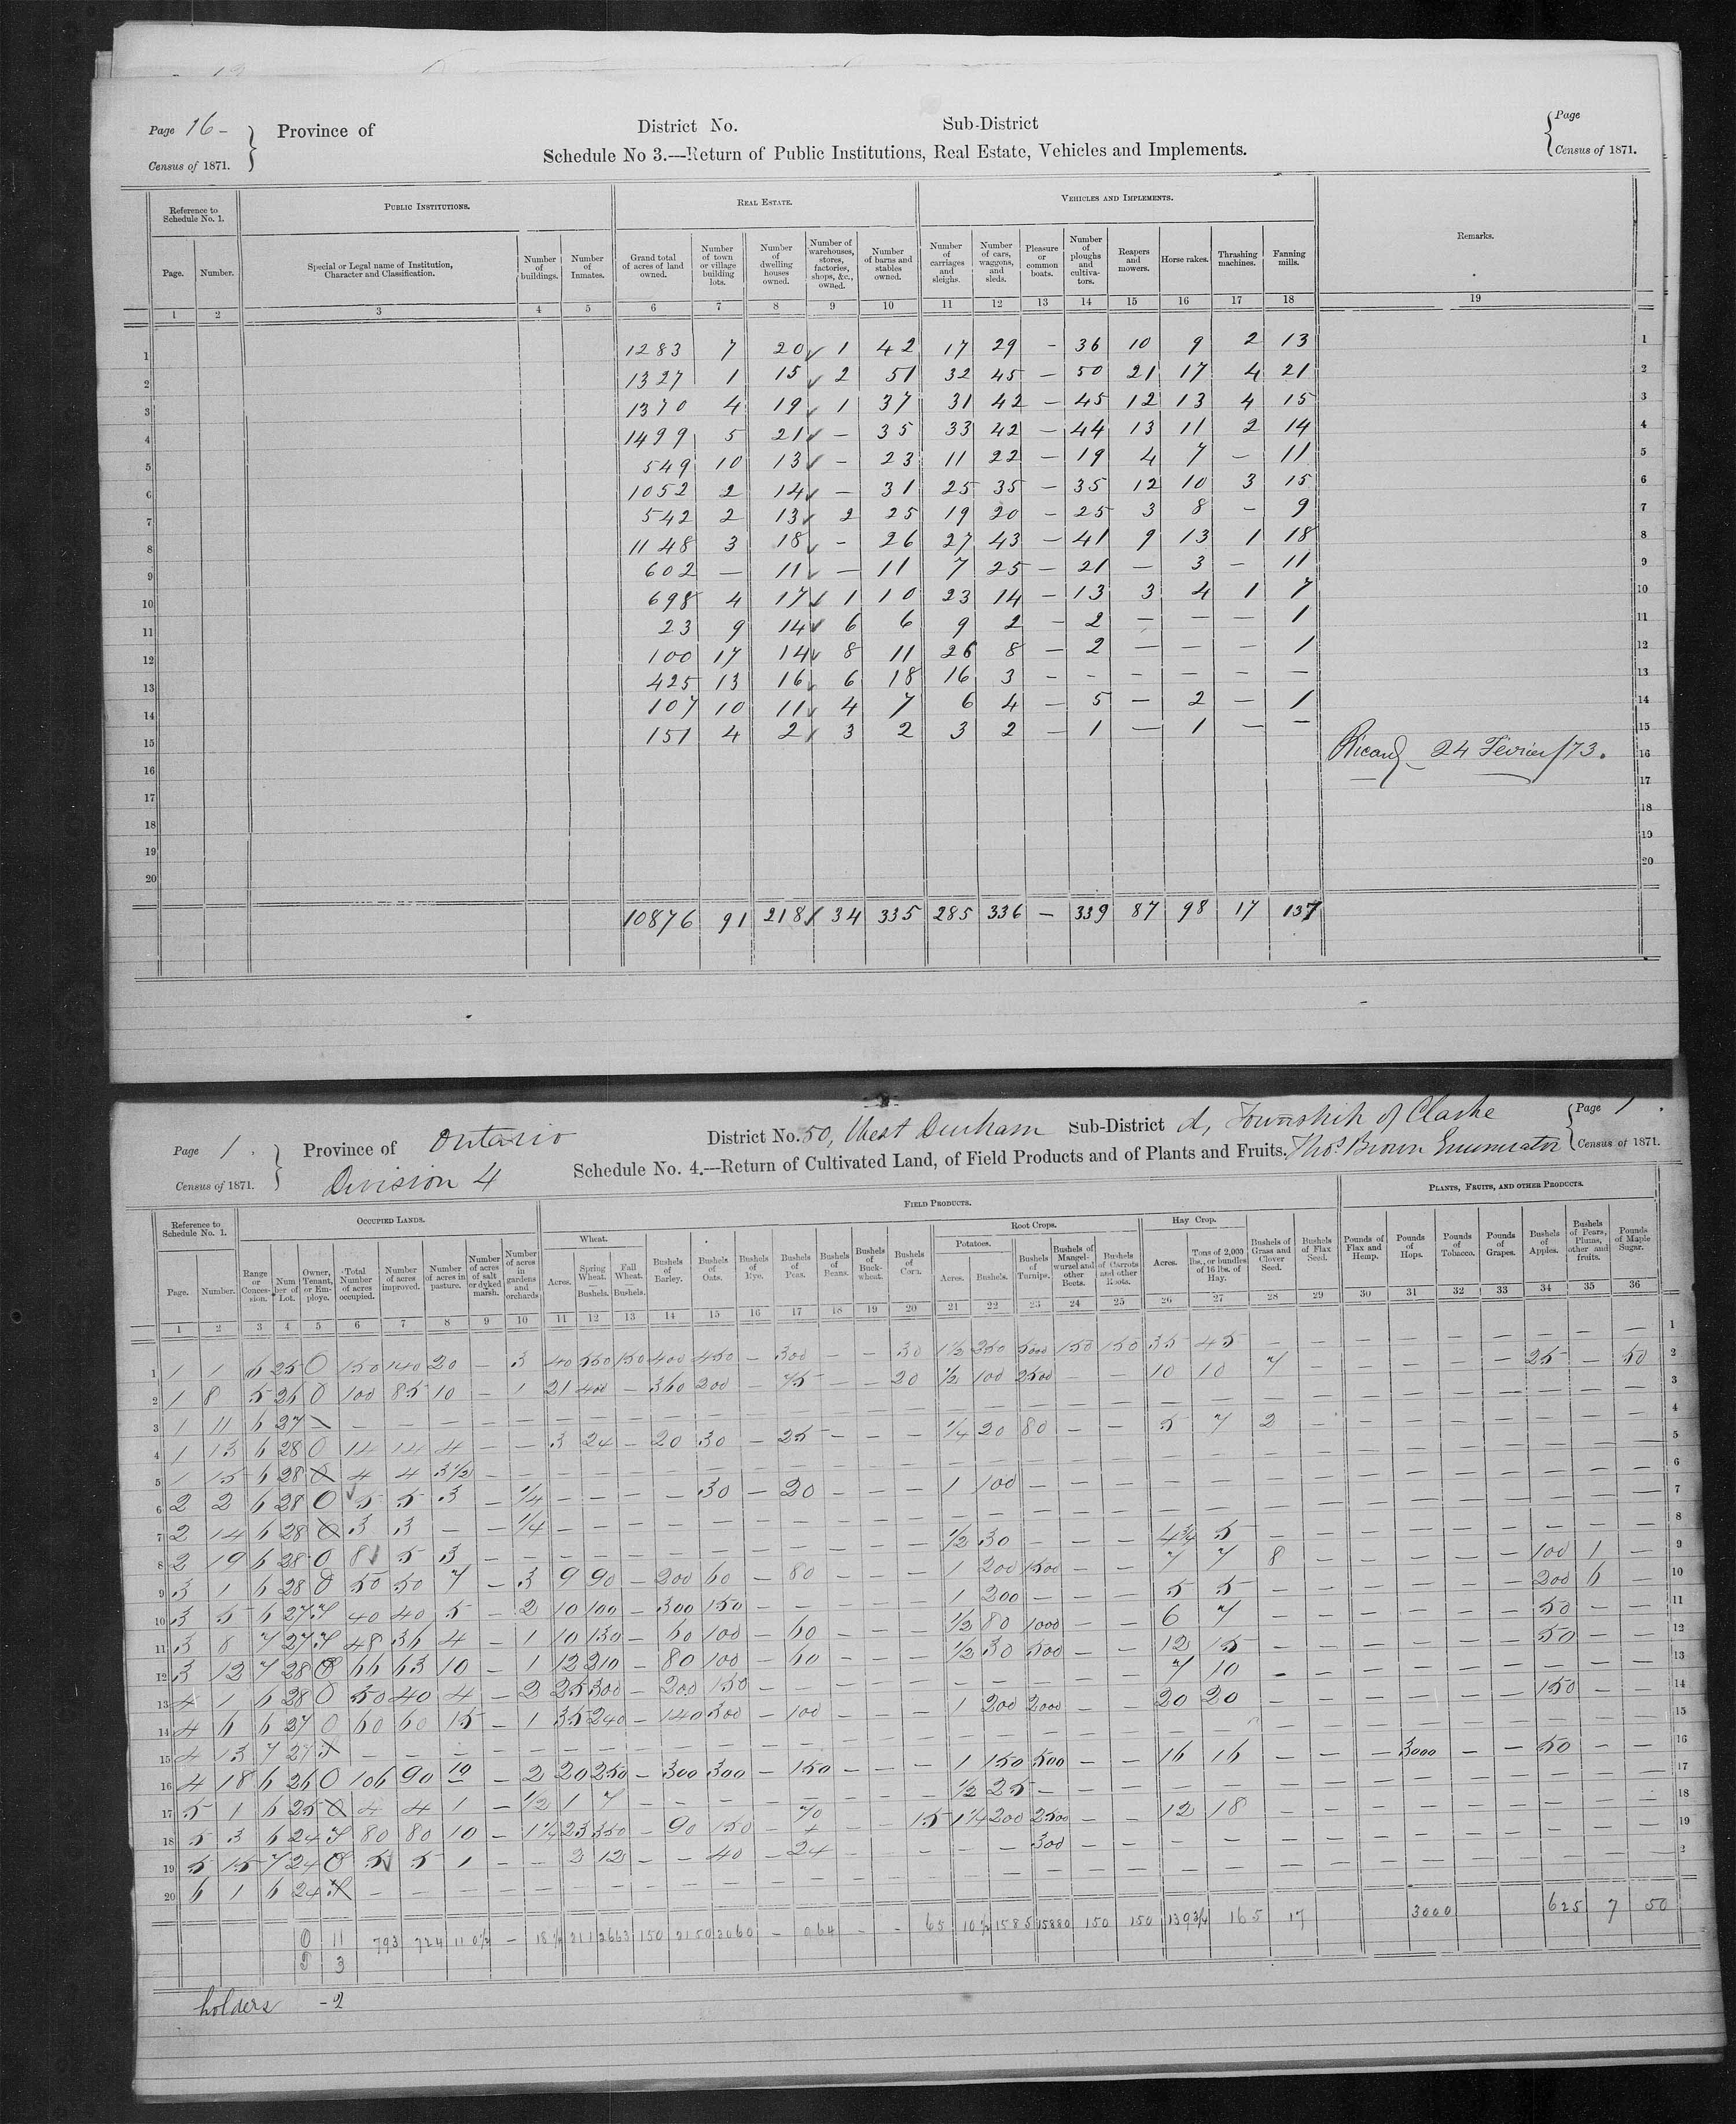 Page 16 -
Census of 1871.
Province of
District No.
Sub-District
Page
Census of 1871.
Schedule No 3.—Return of Public Institutions, Real Estate, Vehicles and Implements.
Reference to Schedule No. 1.
PUBLIC INSTITUTIONS.
REAL ESTATE.
VEHICLES AND IMPLEMENTS.
Remarks.
Page. Number. Special or Legal name of Institution, Character and Classification. Number of buildings. Number of Inmates. Grand total of acres of land owned. Number of town or village building lots. Number of dwelling houses owned. Number of warehouses, stores, factories, shops, &c., owned. Number of barns and stables owned. Number of carriages and sleighs. Number of cars, waggons, and sleds. Pleasure or common boats. Number of ploughs and cultiva-tors. Reapers and mowers. Horse rakes. Thrashing machines. Fanning mills.
1 2 3 4 5 6 7 8 9 10 11 12 13 14 15 16 17 18 19
1 1283 7 20 ✓ 1 42 17 29 - 36 10 9 2 13 1
2 1327 1 15 ✓ 2 51 32 45 - 50 21 17 4 21 2
3 1370 4 19 ✓ 1 37 31 42 - 45 12 13 4 15 3
4 1499 5 21 ✓ - 35 33 42 - 44 13 11 2 14 4
5 549 10 13 ✓ - 23 11 22 - 19 4 7 - 11 5
6 1052 2 14 ✓ - 31 25 35 - 35 12 10 3 15 6
7 542 2 13 ✓ 2 25 19 20 - 25 3 8 - 9 7
8 1148 3 18 ✓ - 26 27 43 - 41 9 13 1 18 8
9 602 - 11 ✓ - 11 7 25 - 21 - 3 - 11 9
10 698 4 17 ✓ 1 10 23 14 - 13 3 4 1 7 10
11 23 9 14 ✓ 6 6 9 2 - 2 - - - 1 11
12 100 17 14 ✓ 8 11 26 8 - 2 - - - 1 12
13 425 13 16 ✓ 6 18 16 3 - - - - - - 13
14 107 10 11 ✓ 4 7 6 4 - 5 - 2 - 1 14
15 151 4 2 ✓ 3 2 3 2 - 1 - 1 - - 15
16 Ricard - 24 Février /73. 16
17 17
18 18
19 19
20 20
10876 91 218 ✓ 34 335 285 336 - 339 87 98 17 137
Page 1.
Census of 1871.
Province of Ontario
Division 4
District No. 50, West Durham Sub-District d, Township of Clarke
Page 1.
Census of 1871.
Schedule No. 4.—Return of Cultivated Land, of Field Products and of Plants and Fruits. Thos. Brown Enumerator
Reference to Schedule No. 1.
OCCUPIED LANDS.
FIELD PRODUCTS.
PLANTS, FRUITS, AND OTHER PRODUCTS.
Wheat.
Root Crops.
Potatoes.
Hay Crop.
Page. Number. Range or Conces-sion. Num ber of Lot. Owner, Tenant, or Em-ploye. Total Number of acres occupied. Number of acres improved. Number of acres in pasture. Number of acres of salt or dyked marsh. Number of acres in gardens and orchards Acres. Spring Wheat. — Bushels. Fall Wheat. — Bushels. Bushels of Barley. Bushels of Oats. Bushels of Rye. Bushels of Peas. Bushels of Beans. Bushels of Buck-wheat. Bushels of Corn. Acres. Bushels. Bushels of Turnips. Bushels of Mangel-wurzel and other Beets. Bushels of Carrots and other Roots. Acres. Tons of 2,000 lbs., or bundles of 16 lbs. of Hay. Bushels of Grass and Clover Seed. Bushels of Flax Seed. Pounds of Flax and Hemp. Pounds of Hops. Pounds of Tobacco. Pounds of Grapes. Bushels of Apples. Bushels of Pears, Plums, other and fruits. Pounds of Maple Sugar.
1 2 3 4 5 6 7 8 9 10 11 12 13 14 15 16 17 18 19 20 21 22 23 24 25 26 27 28 29 30 31 32 33 34 35 36
1 1 1 6 25 O 150 140 20 - 3 40 550 150 400 450 - 300 - - 30 1½ 250 5000 150 150 35 45 - - - - - - - - - 1
2 1 8 5 26 O 100 85 10 - 1 21 400 - 360 200 - 75 - - 20 ½ 100 2500 - - 10 10 7 - - - - - 25 - 50 2
3 1 11 6 27 - - - - - - - - - - - - - - - - - - - - - - - - - - - - - - - 3
4 1 13 6 28 O 14 14 4 - - 3 24 - 20 30 - 25 - - - ¼ 20 80 - - 5 7 2 - - - - - - - - 4
5 1 15 6 28 O 4 4 3½ - - - - - - - - - - - - - - - - - - - - - - - - - - - - 5
6 2 2 6 28 O 5 5 3 - ¼ - - - - 30 - 20 - - - 1 100 - - - - - - - - - - - - - - 6
7 2 14 6 28 O 3 3 - - ¼ - - - - - - - - - - - - - - - - - - - - - - - - - - 7
8 2 19 6 28 O 8 5 3 - - - - - - - - - - - - ½ 30 - - - 4¾ 5 - - - - - - - - - 8
9 3 1 6 28 O 50 50 7 - 3 9 90 - 200 60 - 80 - - - 1 200 1500 - - 7 7 8 - - - - - 100 1 - 9
10 3 5 6 27 T 40 40 5 - 2 10 100 - 300 150 - - - - - 1 200 - - - 5 5 - - - - - - 200 6 - 10
11 3 8 7 27 T 48 36 4 - 1 10 130 - 60 100 - 60 - - - ½ 80 1000 - - 6 7 - - - - - - 50 - - 11
12 3 12 7 28 O 66 63 10 - 1 12 210 - 80 100 - 60 - - - ½ 30 500 - - 12 15 - - - - - - 50 - - 12
13 4 1 6 28 O 50 40 4 - 2 25 300 - 200 150 - - - - - - - - - - 7 10 - - - - - - - - - 13
14 4 6 6 27 O 60 60 15 - 1 35 240 - 140 300 - 100 - - - 1 200 2000 - - 20 20 - - - - - - 150 - - 14
15 4 13 7 27 - - - - - - - - - - - - - - - - - - - - - - - - - - - - - - - 15
16 4 18 6 26 O 106 90 10 - 2 20 250 - 300 300 - 150 - - - 1 150 500 - - 16 16 - - - 3000 - - 50 - - 16
17 5 1 6 25 O 4 4 1 - ½ 1 7 - - - - - - - - ½ 25 - - - - - - - - - - - - - - 17
18 5 3 6 24 T 80 80 10 - 1¼ 23 350 - 90 150 - 70 - - 15 1¼ 200 2500 - - 12 18 - - - - - - - - - 18
19 5 15 7 24 O 5 5 1 - - 2 12 - - 40 - 24 - - - - - 300 - - - - - - - - - - - - - 19
20 6 1 6 24 - - - - - - - - - - - - - - - - - - - - - - - - - - - - - - - 2
O 11 793 724 110½ - 18¼ 211 2663 150 2150 2060 - 964 - - 65 10½ 1585 15880 150 150 139¾ 165 17 3000 625 7 50
T 3
holders - 2